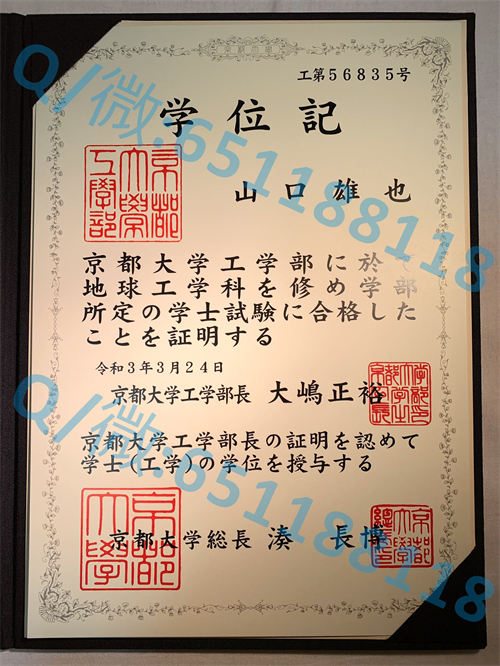 工第56835号
学位記
京都大学工学部
山口雄也
京都大学工学部に於て
地球工学科を修め学部
所定の学士試験に合格した
ことを証明する
令和3年3月24日
京都大学工学部長 大嶋正裕
京都大学工学部長の証明を認めて
学士(工学)の学位を授与する
京都大学
京都大学総長 湊 長博
Q/微.651188118
Q/微.651188118